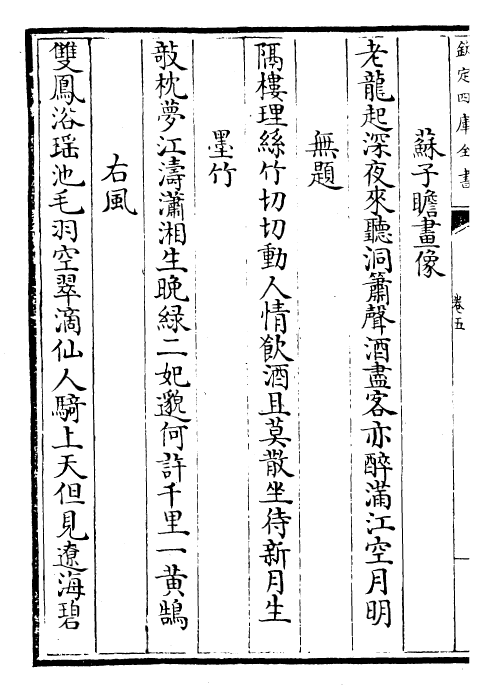 欽定四庫全書
卷五
蘇子瞻畫像
老龍起深夜來聽洞簫聲酒盡客亦醉滿江空月明
無題
隅樓理絲竹切切動人情飲酒且莫散坐待新月生
墨竹
敧枕夢江濤瀟湘生晚綠二妃邈何許千里一黃鵠
右風
雙鳳浴瑶池毛羽空翠滴仙人騎上天但見遼海碧